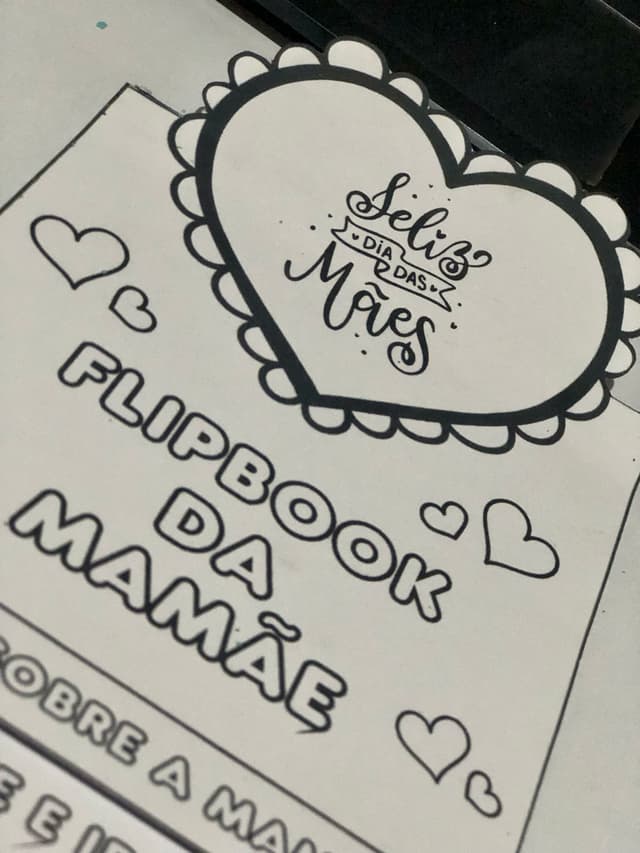 Feliz
DIA DAS
Mães
FLIPBOOK
DA
MAMÃE
SOBRE A
E E